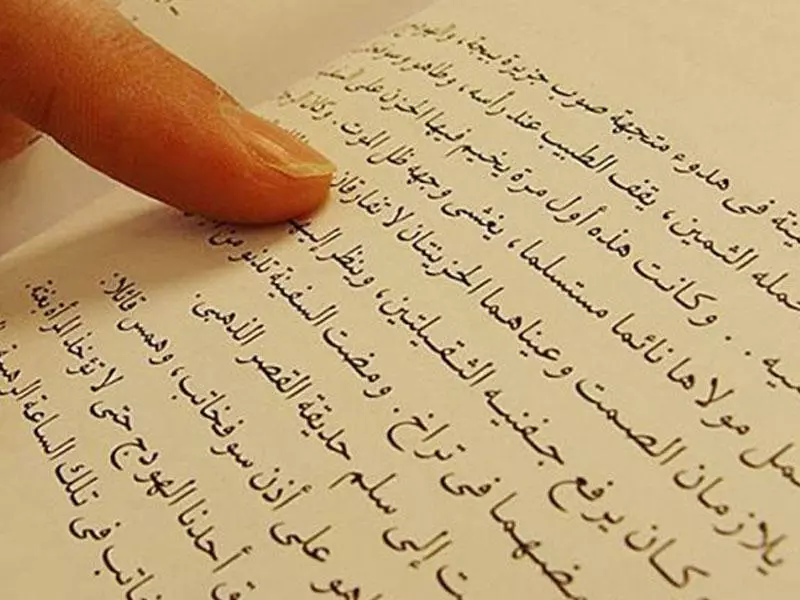 فى هدوء متجهة صوب جزيرة بيجة،
حمله الثمين، يقف الطبيب عند رأسه، وطاهو
وكانت هذه أول مرة يخيم فيها الحزن على
مولاها نائما مستسلما، يغشى وجهه ظل الموت. وكان
يلازمان الصمت وعيناهما الحزينتان لا تفارقان
كان يرفع جفنيه الثقيلتين، وينظر
فى تراخ. ومضت السفينة تدنو من
إلى سلم حديقة القصر الذهبى.
على أذن سوفخاتب، وهمس قائلا:
أحدنا الهودج حتى لا تؤخذ المرأة بغتة.
فى تلك الساعة